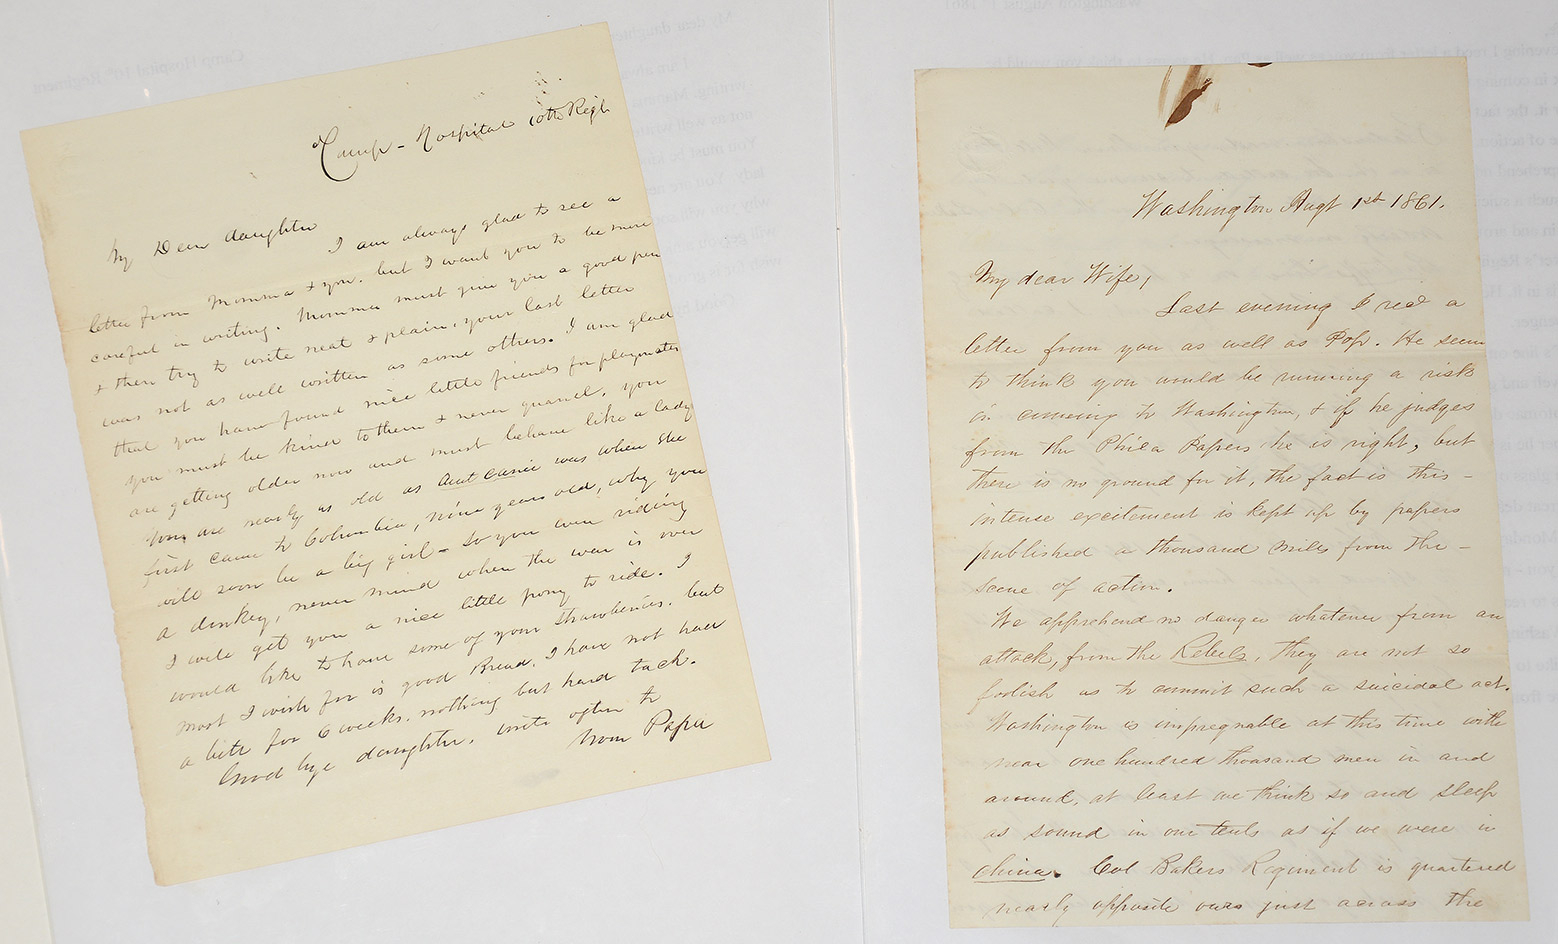 Camp - Hospital 10th Regt
My Dear daughter
I am always glad to see a
letter from Momma & you. but I want you to be more
careful in writing. Momma must give you a good pen
& then try to write neat & plain, your last letter
was not as well written as some others. I am glad
that you have found nice little friends for playmates
you must be kind to them & never quarrel, you
are getting older now and must behave like a lady
You are nearly as old as Aunt Carrie was when she
first came to Columbia, nine years old, why you
will soon be a big girl - So you were riding
a dinkey, never mind when the war is over
I will get you a nice little pony to ride. I
would like to have some of your strawberries. but
most I wish for is good Bread, I have not had
a bite for 6 weeks. nothing but hard tack.
Good bye daughter. write often to
Your Papa
Washington Augt 1st 1861.
My dear Wife,
Last evening I recd a
letter from you as well as Pop. He seem
to think you would be running a risk
in comeing to Washington, & if he judges
from the Phila Papers he is right, but
there is no ground for it, the fact is this -
intense excitement is kept up by papers
published a thousand miles from the -
scene of action.
We apprehend no danger whatever from an
attack, from the Rebels, they are not so
foolish as to commit such a suicidal act.
Washington is impregnable at this time with
near one hundred thousand men in and
around, at least we think so and sleep
as sound in our tents as if we were in
China. Col Bakers Regiment is quartered
nearly opposite ours just across the